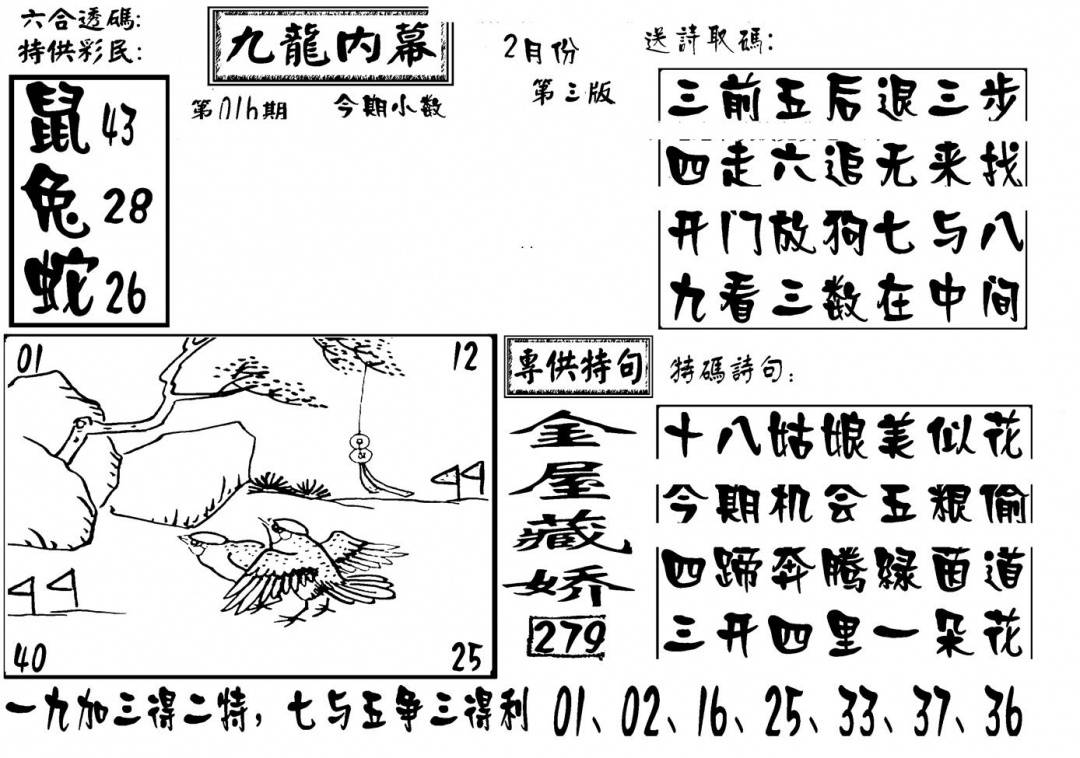 六合透碼:
特供彩民:
九龍内幕
第016期
今期小数
2月份
第三版
鼠 43
兔 28
蛇 26
送詩取碼:
三前五后退三步
四走六追无来找
开门放狗七与八
九看三数在中间
01
12
40
25
專供特句
金屋藏娇
279
特碼詩句:
十八姑娘美似花
今期机会五粮偷
四蹄奔腾緑茵道
三开四里一朵花
一九加三得二特, 七与五争三得利 01、02、16、25、33、37、36